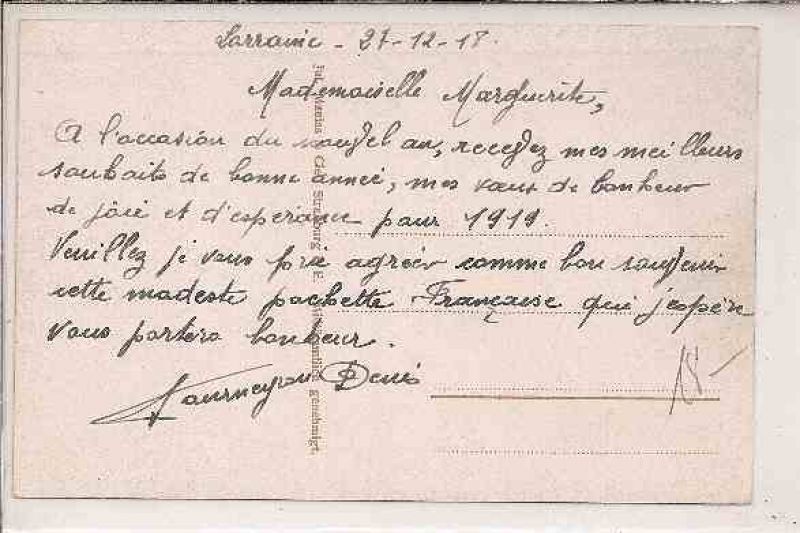 Lorraine - 27-12-18.
Mademoiselle Marguerite,
A l'occasion du nouvel an, recevez mes meilleurs
souhaits de bonne année, mes vœux de bonheur
de joie et d'espérance pour 1919.
Veuillez je vous prie agréer comme bon souvenir
cette modeste pochette Française qui j'espère
vous portera bonheur.
Tourneyron Denis
18 -
Jul. Manias & Cie. Strassburg i. E.
genehmigt.